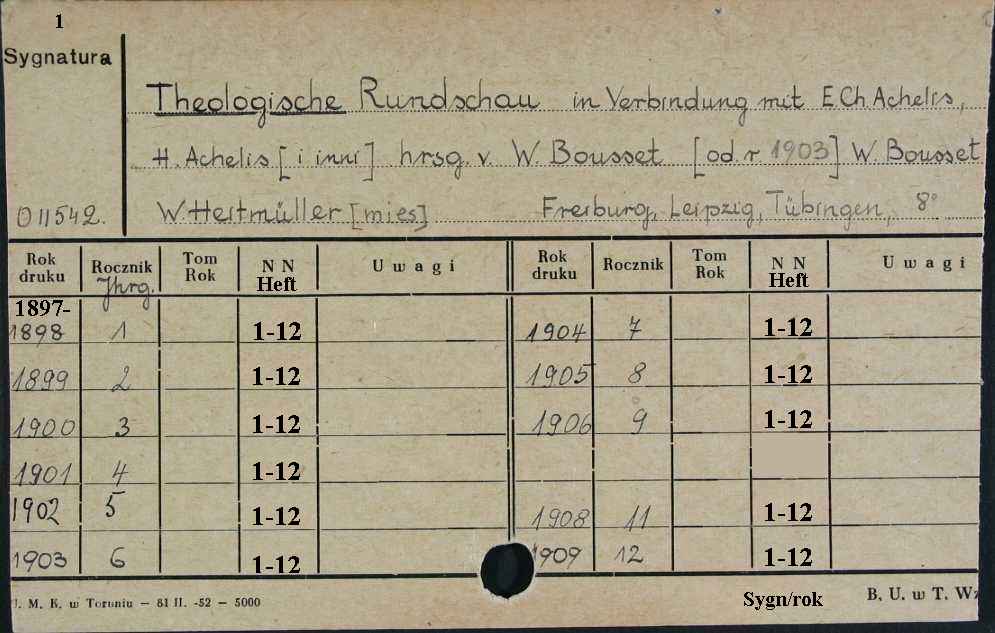 1
Sygnatura
Theologische Rundschau in Verbindung mit E Ch Achelis,
H. Achelis [i inni] hrsg. v. W. Bousset [od r 1903] W. Bousset
011542. W. Heitmüller [mies] Freiburg, Leipzig, Tübingen, 8°
Rok druku Rocznik Jhrg. Tom Rok N N Heft Uwagi Rok druku Rocznik Tom Rok N N Heft Uwagi
1897-
1898 1 1-12 1904 7 1-12
1899 2 1-12 1905 8 1-12
1900 3 1-12 1906 9 1-12
1901 4 1-12
1902 5 1-12 1908 11 1-12
1903 6 1-12 1909 12 1-12
. M. K. w Toruniu — 81 II. -52 — 5000 Sygn/rok B. U. w T.